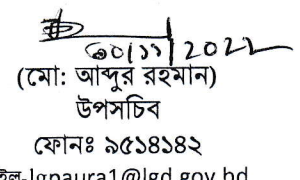 ৩০/১১/2022
(মো: আব্দুর রহমান)
উপসচিব
ফোনঃ ৯৫১৪১৪২
ইল-lgpaura1@lgd.gov.bd